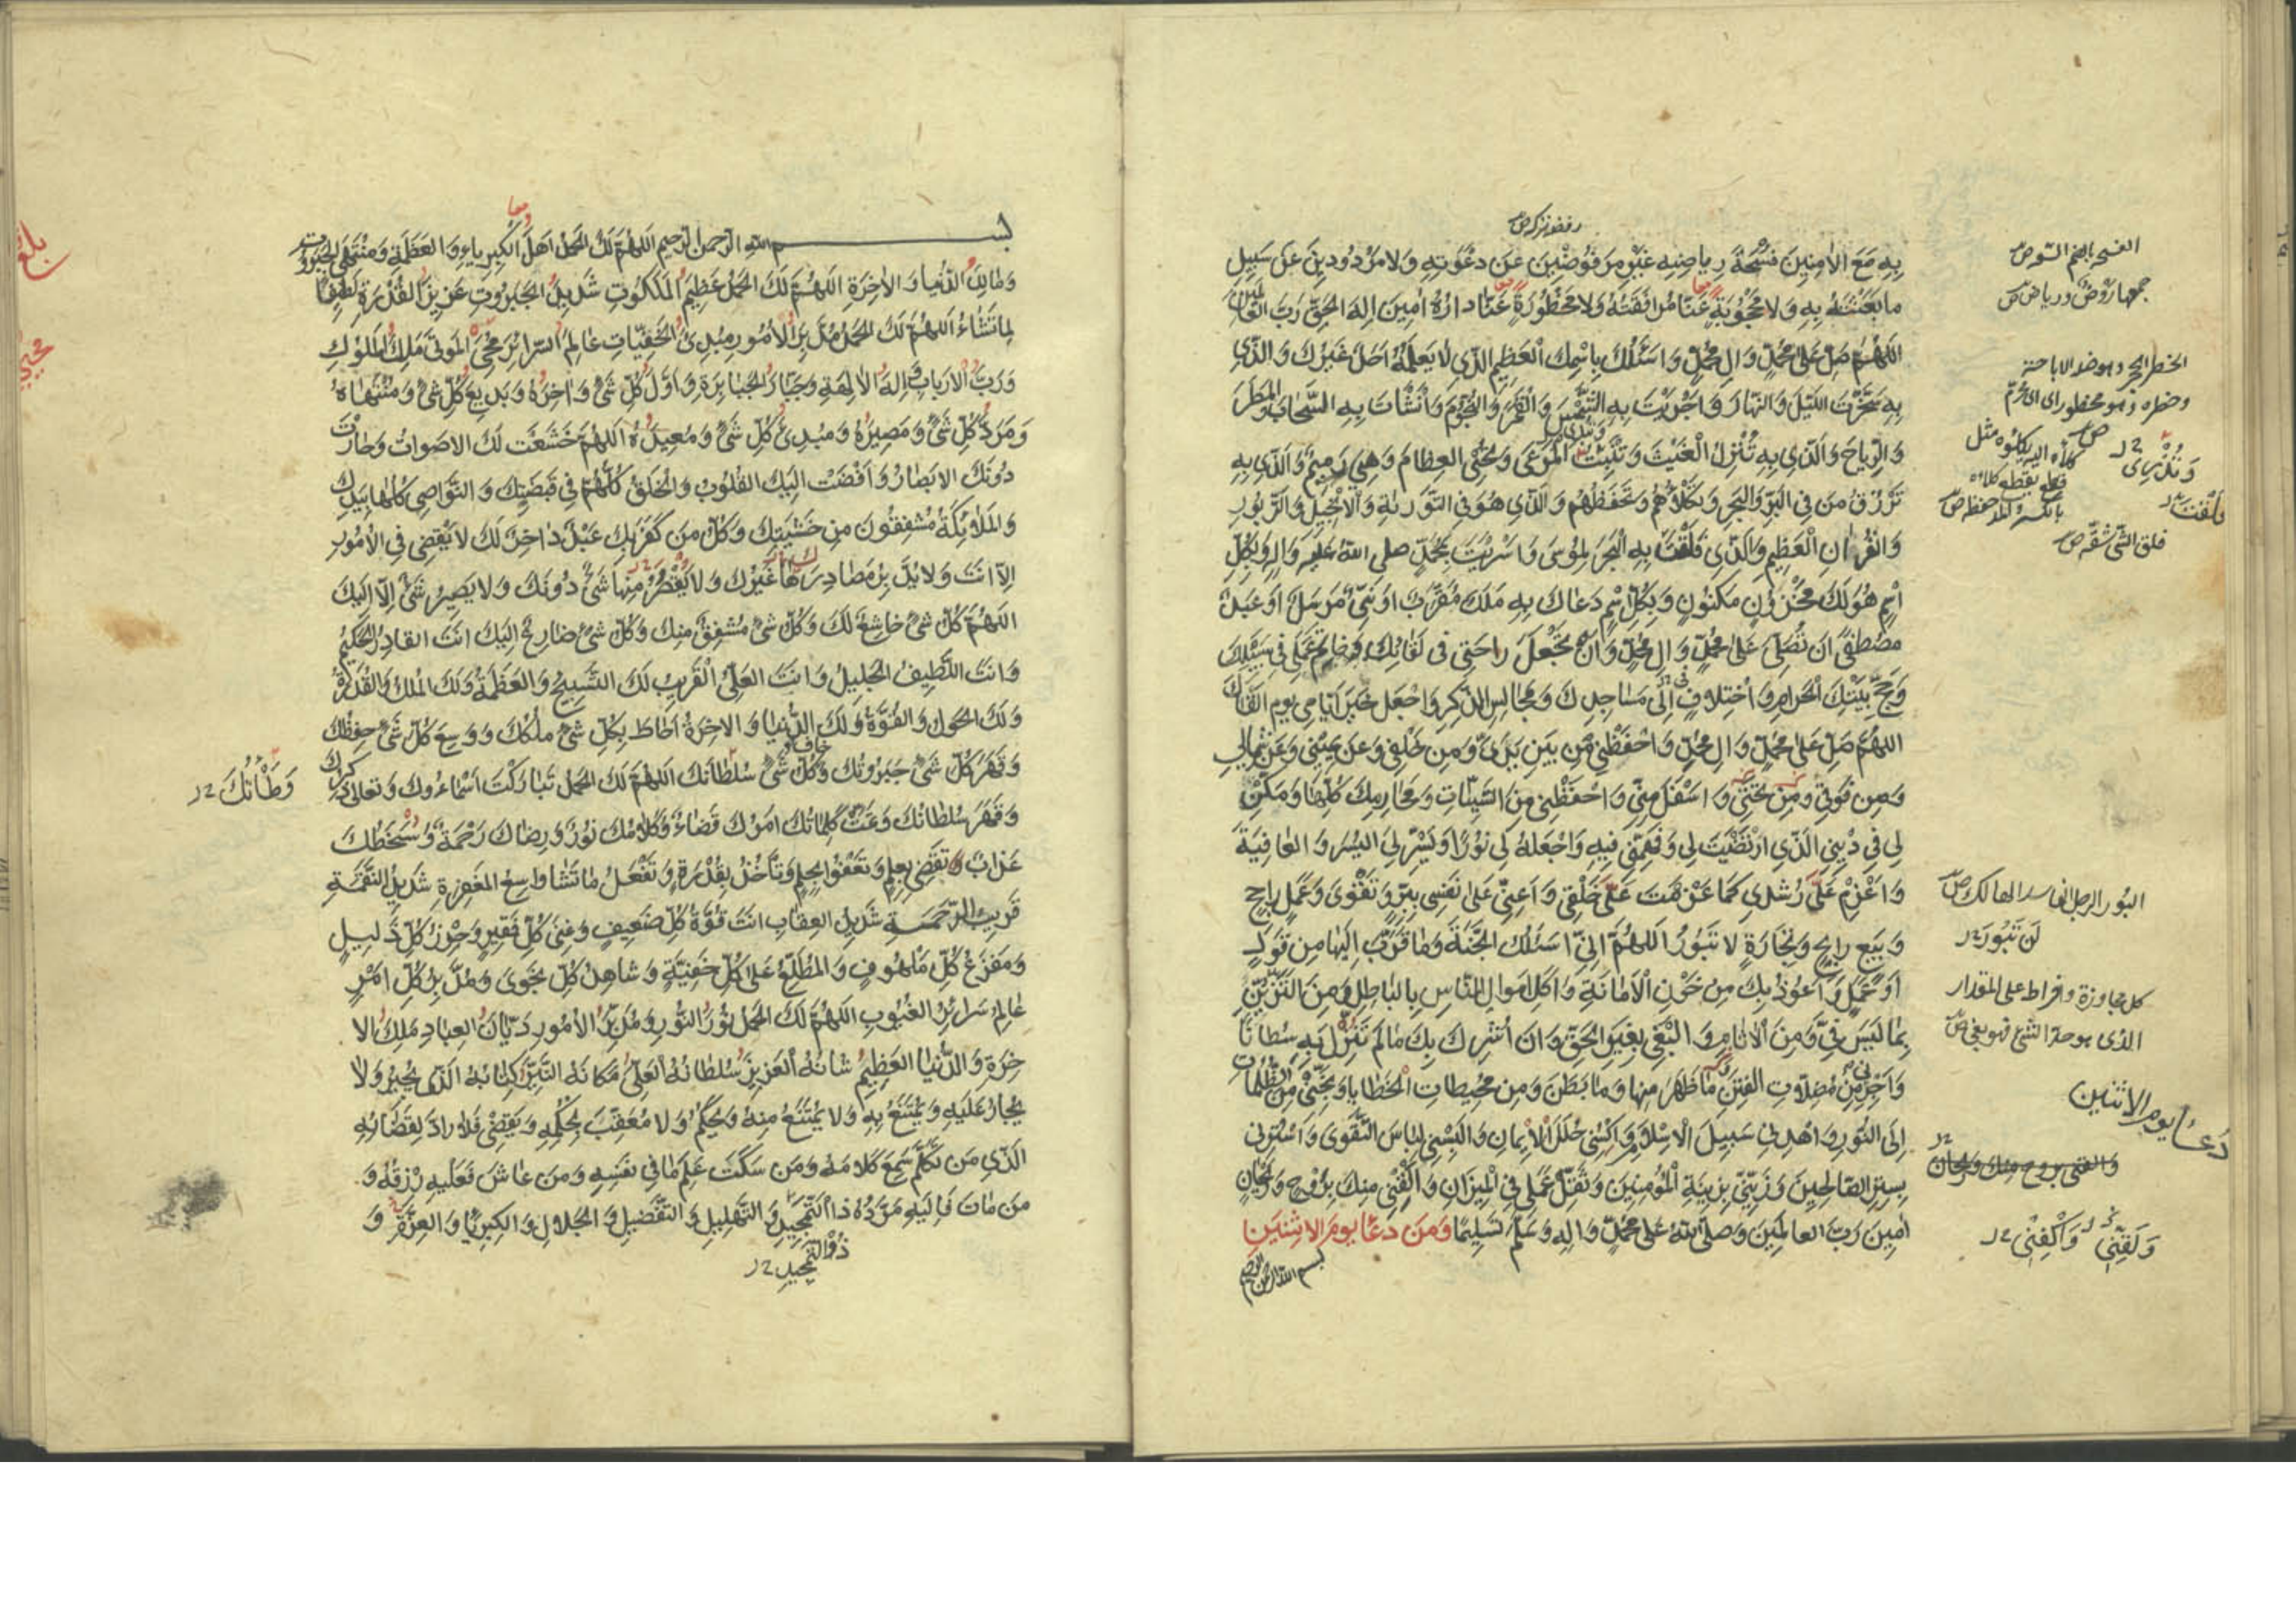 بِهِ مَعَ الْاٰمِنِينَ فُسْحَةَ رِياضِهِ غَيْرَ مَرْفُوضِينَ عَنْ دَعْوَتِهِ وَلا مَرْدُودِينَ عَنْ سَبِيلِ
ما بَعَثْتَهُ بِهِ وَلا مَحْجُوبَةٍ عَنّا مُرافَقَتُهُ وَلا مَحْظُورَةٍ عَنّا دارُهُ اٰمِينَ اِلٰهَ الْحَقِّ رَبَّ العالمين
اَللّٰهُمَّ صَلِّ عَلىٰ مُحَمَّدٍ وَاٰلِ مُحَمَّدٍ وَاَسْئَلُكَ بِاسْمِكَ الْعَظِيمِ الَّذِي لا يَعْلَمُهُ اَحَدٌ غَيْرُكَ وَالَّذِي
بِهِ سَخَّرْتَ اللَّيْلَ وَالنَّهارَ وَاَجْرَيْتَ بِهِ الشَّمْسَ وَالْقَمَرَ وَالنُّجُومَ وَاَنْشَأْتَ بِهِ السَّحابَ وَالْمَطَرَ
وَالرِّياحَ وَالَّذِي بِهِ تُنْزِلُ الْغَيْثَ وَتُنْبِتُ الْمَرْعىٰ وَتُحْيِي الْعِظامَ وَهِيَ رَمِيمٌ وَالَّذِي بِهِ
تَرْزُقُ مَنْ فِي الْبَرِّ وَالْبَحْرِ وَتَكْلَؤُهُمْ وَتَحْفَظُهُمْ وَالَّذِي هُوَ فِي التَّوْرٰيةِ وَالْاِنْجِيلِ وَالزَّبُورِ
وَالْقُرْاٰنِ الْعَظِيمِ وَالَّذِي فَلَقْتَ بِهِ الْبَحْرَ لِمُوسىٰ وَاَسْرَيْتَ بِمُحَمَّدٍ صلى الله عَلَيْهِ وَاٰلِهِ وَبِكُلِّ
اسْمٍ هُوَ لَكَ مَخْزُونٍ مَكْنُونٍ وَبِكُلِّ اسْمٍ دَعاكَ بِهِ مَلَكٌ مُقَرَّبٌ اَوْ نَبِيٌّ مُرْسَلٌ اَوْ عَبْدٌ
مُصْطَفىً اَنْ تُصَلِّيَ عَلىٰ مُحَمَّدٍ وَاٰلِ مُحَمَّدٍ وَاَنْ تَجْعَلَ راحَتِي فِي لِقائِكَ وَخاتَمَ عَمَلِي فِي سَبِيلِكَ
وَحَجِّ بَيْتِكَ الْحَرامِ وَاخْتِلافٍ اِلىٰ مَساجِدِكَ وَمَجالِسِ الذِّكْرِ وَاجْعَلْ خَيْرَ اَيّامِي يَوْمَ اَلْقاكَ
اَللّٰهُمَّ صَلِّ عَلىٰ مُحَمَّدٍ وَاٰلِ مُحَمَّدٍ وَاحْفَظْنِي مِنْ بَيْنِ يَدَيَّ وَمِنْ خَلْفِي وَعَنْ يَمِينِي وَعَنْ شِمالِي
وَمِنْ فَوْقِي وَمِنْ تَحْتِي وَاَسْفَلَ مِنِّي وَاحْفَظْنِي مِنَ السَّيِّئاتِ وَمَحارِمِكَ كُلِّها وَمَكِّنْ
لِي فِي دِيْنِي الَّذِي ارْتَضَيْتَ لِي وَفَهِّمْنِي فِيهِ وَاجْعَلْهُ لِي نُورًا وَيَسِّرْ لِيَ الْيُسْرَ وَالْعافِيَةَ
وَاعْزِمْ عَلىٰ رُشْدِي كَما عَزَمْتَ عَلىٰ خَلْقِي وَاَعِنِّي عَلىٰ نَفْسِي بِبِرٍّ وَتَقْوىٰ وَعَمَلٍ راجِحٍ
وَبَيْعٍ رابِحٍ وَتِجارَةٍ لا تَبُورُ اَللّٰهُمَّ اِنِّي اَسْئَلُكَ الْجَنَّةَ وَما قَرَّبَ اِلَيْها مِنْ قَوْلٍ
اَوْ عَمَلٍ وَاَعُوذُ بِكَ مِنْ خَوْنِ الْاَمانَةِ وَاَكْلِ اَمْوالِ النّاسِ بِالْباطِلِ وَمِنَ التَّزَيُّنِ
بِما لَيْسَ فِيَّ وَمِنَ الْاٰثامِ وَالْبَغْيِ بِغَيْرِ الْحَقِّ وَاَنْ اُشْرِكَ بِكَ ما لَمْ تُنَزِّلْ بِهِ سُلْطانًا
وَاَجِرْنِي مِنْ مُضِلّاتِ الْفِتَنِ ما ظَهَرَ مِنْها وَما بَطَنَ وَمِنْ مُحِيطاتِ الْخَطايا وَنَجِّنِي مِنَ الظُّلُماتِ
اِلَى النُّورِ وَاهْدِنِي سَبِيلَ الْاِسْلامِ وَاكْسُنِي حُلَلَ الْاِيمانِ وَاَلْبِسْنِي لِباسَ التَّقْوىٰ وَاسْتُرْنِي
بِسِتْرِ الصّالِحِينَ وَزَيِّنِّي بِزِينَةِ الْمُؤْمِنِينَ وَثَقِّلْ عَمَلِي فِي الْمِيزانِ وَاكْفِنِي مِنْكَ بِرَوْحٍ وَرَيْحانٍ
اٰمِينَ رَبَّ الْعالَمِينَ وَصَلَّى اللهُ عَلىٰ مُحَمَّدٍ وَاٰلِهِ وَسَلَّمَ تَسْلِيمًا وَمِنْ دُعاءِ يَوْمِ الْاِثْنَيْنِ
بسم الله الرحمن الرحيم
الفسحة بالضم السعة ص
جمعها رَوْض ورياض ص
الحظر الحجر وهو ضد الاباحة
وحظره فهو محظور اى محرّم
وَتُنْبِتُ
كلأه الله يكلؤه مثل
قطع يقطع كلاءة
بالكسر اى حفظه ص
فَلَقْتَ
فلق الشىء شقّه ص
البُور الرجل الفاسد الهالك ص
لَنْ تَبُورَ
كل مجاوزة وافراط على المقدار
الذى هو حدّ الشىء فهو بغى ص
دُعاء يوم الاثنين
والقنى بروح منك وريحان
وَلَقِّنِي وَاكْفِنِي
بسم الله الرحمن الرحيم اَللّٰهُمَّ لَكَ الْحَمْدُ اَهْلَ الْكِبْرِياءِ وَالْعَظَمَةِ وَمُنْتَهَى الْجَبَرُوتِ
وَمالِكَ الدُّنْيا وَالْاٰخِرَةِ اَللّٰهُمَّ لَكَ الْحَمْدُ عَظِيمَ الْمَلَكُوتِ شَدِيدَ الْجَبَرُوتِ عَزِيزَ الْقُدْرَةِ لَطِيفًا
لِما تَشاءُ اَللّٰهُمَّ لَكَ الْحَمْدُ مُدَبِّرَ الْاُمُورِ مُبْدِئَ الْخَفِيّاتِ عالِمَ السَّرائِرِ مُحْيِيَ الْمَوْتىٰ مَلِكَ الْمُلُوكِ
وَرَبَّ الْاَرْبابِ وَاِلٰهَ الْاٰلِهَةِ وَجَبّارَ الْجَبابِرَةِ وَاَوَّلَ كُلِّ شَيْءٍ وَاٰخِرَهُ وَبَدِيعَ كُلِّ شَيْءٍ وَمُنْتَهاهُ
وَمَرَدَّ كُلِّ شَيْءٍ وَمَصِيرَهُ وَمُبْدِئَ كُلِّ شَيْءٍ وَمُعِيدَهُ اَللّٰهُمَّ خَشَعَتْ لَكَ الْاَصْواتُ وَحارَتْ
دُونَكَ الْاَبْصارُ وَاَفْضَتْ اِلَيْكَ الْقُلُوبُ وَالْخَلْقُ كُلُّهُمْ فِي قَبْضَتِكَ وَالنَّواصِي كُلُّها بِيَدِكَ
وَالْمَلٰئِكَةُ مُشْفِقُونَ مِنْ خَشْيَتِكَ وَكُلُّ مَنْ كَفَرَ بِكَ عَبْدٌ داخِرٌ لَكَ لا يَقْضِي فِي الْاُمُورِ
اِلّا اَنْتَ وَلا يُدَبِّرُ مَصادِرَها غَيْرُكَ وَلا يَقْصُرُ مِنْها شَيْءٌ دُونَكَ وَلا يَصِيرُ شَيْءٌ اِلّا اِلَيْكَ
اَللّٰهُمَّ كُلُّ شَيْءٍ خاشِعٌ لَكَ وَكُلُّ شَيْءٍ مُشْفِقٌ مِنْكَ وَكُلُّ شَيْءٍ ضارِعٌ اِلَيْكَ اَنْتَ الْقادِرُ الْحَكِيمُ
وَاَنْتَ اللَّطِيفُ الْجَلِيلُ وَاَنْتَ الْعَلِيُّ الْقَرِيبُ لَكَ التَّسْبِيحُ وَالْعَظَمَةُ وَلَكَ الْمُلْكُ وَالْقُدْرَةُ
وَلَكَ الْحَوْلُ وَالْقُوَّةُ وَلَكَ الدُّنْيا وَالْاٰخِرَةُ اَحاطَ بِكُلِّ شَيْءٍ مُلْكُكَ وَوَسِعَ كُلَّ شَيْءٍ حِفْظُكَ
وَقَهَرَ كُلَّ شَيْءٍ جَبَرُوتُكَ وَخافَ كُلُّ شَيْءٍ سُلْطانَكَ اَللّٰهُمَّ لَكَ الْحَمْدُ تَبارَكَتْ اَسْماءُوكَ وَتَعالىٰ ذِكْرُكَ
وَقَهَرَ سُلْطانُكَ وَتَمَّتْ كَلِماتُكَ اَمْرُكَ قَضاءٌ وَكَلامُكَ نُورٌ وَرِضاكَ رَحْمَةٌ وَسَخَطُكَ
عَذابٌ تَقْضِي بِعِلْمٍ وَتَعْفُو بِحِلْمٍ وَتَأْخُذُ بِقُدْرَةٍ وَتَفْعَلُ ما تَشاءُ واسِعُ الْمَغْفِرَةِ شَدِيدُ النَّقِمَةِ
قَرِيبُ الرَّحْمَةِ شَدِيدُ الْعِقابِ اَنْتَ قُوَّةُ كُلِّ ضَعِيفٍ وَغِنىٰ كُلِّ فَقِيرٍ وَحِرْزُ كُلِّ ذَلِيلٍ
وَمَفْزَعُ كُلِّ مَلْهُوفٍ وَالْمُطَّلِعُ عَلىٰ كُلِّ خَفِيَّةٍ وَشاهِدُ كُلِّ نَجْوىٰ وَمُدَبِّرُ كُلِّ اَمْرٍ
عالِمُ سَرائِرِ الْغُيُوبِ اَللّٰهُمَّ لَكَ الْحَمْدُ نُورَ النُّورِ وَمُدَبِّرَ الْاُمُورِ دَيّانَ الْعِبادِ مَلِكَ الْاٰ
خِرَةِ وَالدُّنْيا الْعَظِيمَ شَانُهُ الْعَزِيزَ سُلْطانُهُ الْعَلِيَّ مَكانُهُ النَّيِّرَ كِتابُهُ الَّذِي يُجِيرُ وَلا
يُجارُ عَلَيْهِ وَيُمْتَنَعُ بِهِ وَلا يُمْتَنَعُ مِنْهُ وَيَحْكُمُ وَلا مُعَقِّبَ لِحُكْمِهِ وَيَقْضِي فَلا رادَّ لِقَضائِهِ
الَّذِي مَنْ تَكَلَّمَ سَمِعَ كَلامَهُ وَمَنْ سَكَتَ عَلِمَ ما فِي نَفْسِهِ وَمَنْ عاشَ فَعَلَيْهِ رِزْقُهُ وَ
مَنْ ماتَ فَاِلَيْهِ مَرَدُّهُ ذا التَّمْجِيدِ وَالتَّهْلِيلِ وَالتَّفْضِيلِ وَالْجَلالِ وَالْكِبْرِياءِ وَالْعِزَّةِ وَ
ذُو التمجيد
بلغ